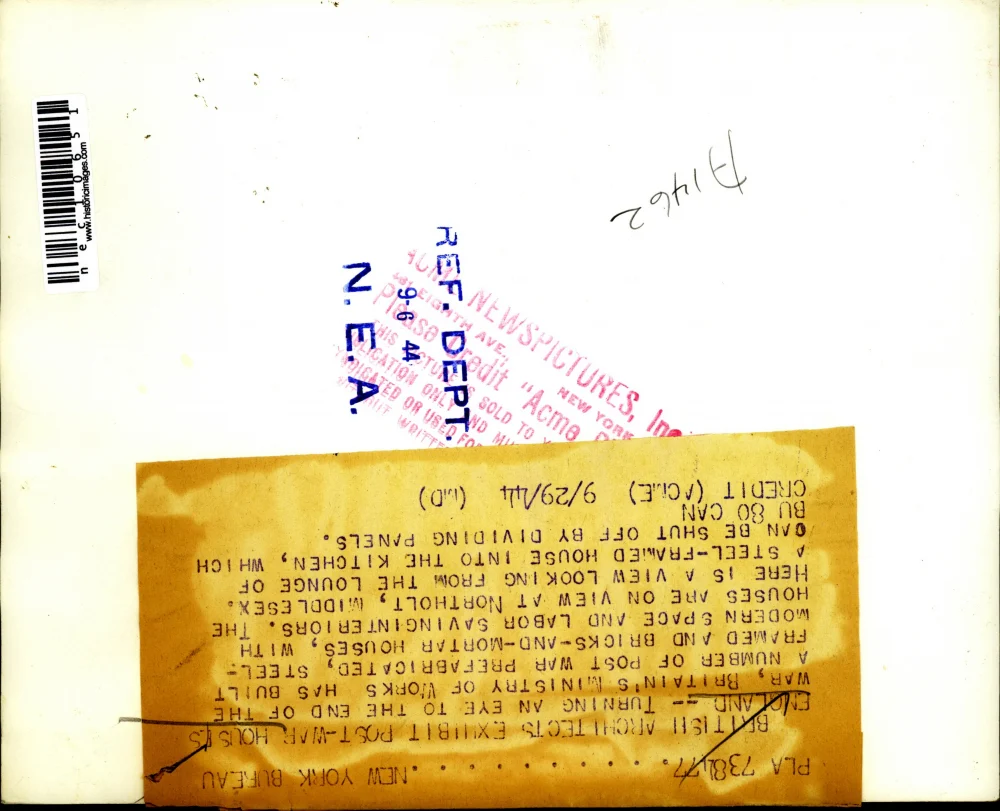 PLA 738477. . . . . . . . . . .NEW YORK BUREAU
BRITISH ARCHITECTS EXHIBIT POST-WAR HOUSES
ENGLAND -- TURNING AN EYE TO THE END OF THE
WAR, BRITAIN'S MINISTRY OF WORKS HAS BUILT
A NUMBER OF POST WAR PREFABRICATED, STEEL-
FRAMED AND BRICKS-AND-MORTAR HOUSES, WITH
MODERN SPACE AND LABOR SAVINGINTERIORS. THE
HOUSES ARE ON VIEW AT NORTHOLT, MIDDLESEX.
HERE IS A VIEW LOOKING FROM THE LOUNGE OF
A STEEL-FRAMED HOUSE INTO THE KITCHEN, WHICH
CAN BE SHUT OFF BY DIVIDING PANELS.
BU 80 CAN
CREDIT (ACME) 9/29/44 (MD)
ACME NEWSPICTURES, Inc
EIGHTH AVE., NEW YORK
Please Credit "Acme
THIS PICTURE IS SOLD TO
ONLY AND
OR USED FOR
REF. DEPT.
9-6 44
N. E. A.
A1462
www.historicimages.com